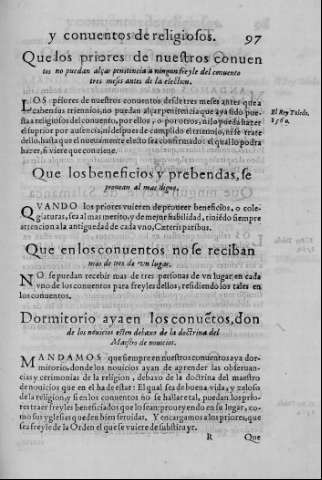 y conuentos de religiosos. 97
Que los priores de nuestros conuen
tos no puedan alçar penitencia a ningun freyle del conuento
tres meses antes de la election.
LOS priores de nuestros conuentos desde tres meses antes que a
caben sus trienios, no puedan alçar penitencia que aya sido pue-
sta a religiosos del conuento, por ellos, o por otros, ni lo pueda hazer
el suprior por ausencia, ni despues de cumplido el trienio, ni se trate
dello, hasta que el nueuamente electo sea confirmado: el qual lo podra
hazer, si viere que conuiene.
El Rey Toledo,
1560.
Que los beneficios y prebendas, se
prouean al mas digno.
QVANDO los priores vuieren de proueer beneficios, o cole-
giaturas, sea al mas merito, y de mejor habilidad, teniẽdo siempre
attencion a la antiguedad de cada vno, Cæteris paribus.
Que en los conuentos no se reciban
mas de tres de vn lugar.
NO se puedan recibir mas de tres personas de vn lugar en cada
vno de los conuentos para freyles dellos, residiendo los tales en
los conuentos.
Dormitorio aya en los conuẽtos, don
de los nouicios esten debaxo de la doctrina del
Maestro de nouicios.
MANDAMOS que siempre en nuestros conuentos aya dor-
mitorio, donde los nouicios ayan de aprender las obseruan-
cias y ceremonias de la religion, debaxo de la doctrina del maestro
de nouicios que en el ha de estar: El qual sea de buena vida, y zeloso
de la religion, y si en los conuentos no se hallare tal, puedan los prio-
res traer freyles beneficiados que lo sean: proueyendo en su lugar, co-
mo sus yglesias queden bien seruidas. Y encargamos a los priores, que
sea freyle de la Orden el que se vuiere de substituyr.
R Que